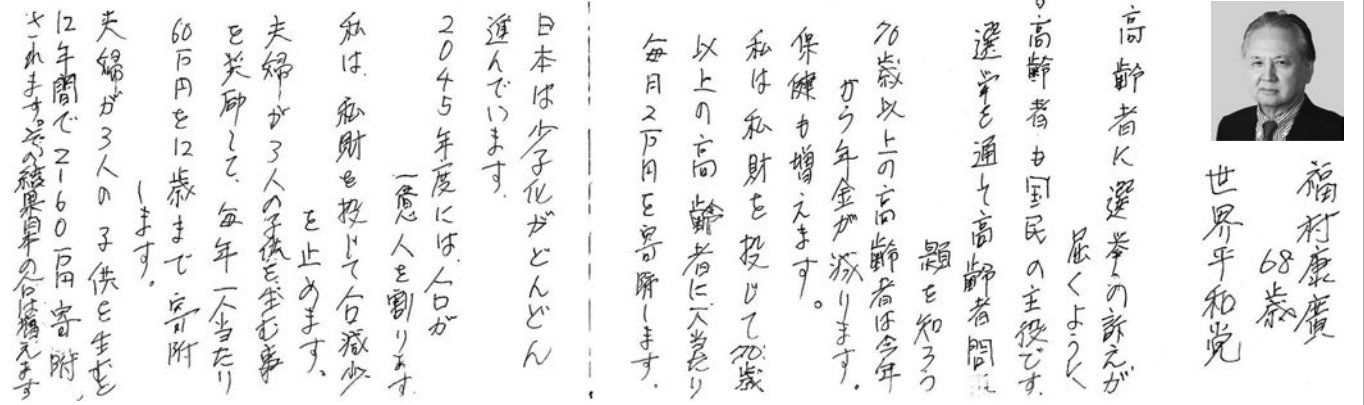 福村康廣
68歳
世界平和党
高齢者に選挙の訴えが
届くように
。高齢者も国民の主役です
選挙を通して高齢者問
題を知ろう
70歳以上の高齢者は今年
から年金が減ります。
保健も増えます。
私は私財を投じて70歳
以上の高齢者に一人当たり
毎月2万円を寄附します。
日本は少子化がどんどん
進んでいます。
2045年度には、人口が
一億人を割ります。
私は、私財を投じて人口減少
を止めます。
夫婦が3人の子供を生む事
を奨励して、毎年一人当たり
60万円を12歳まで寄附
します。
夫婦が3人の子供を生むと
12年間で2160万円寄附
されます。その結果日本の人口は増えます